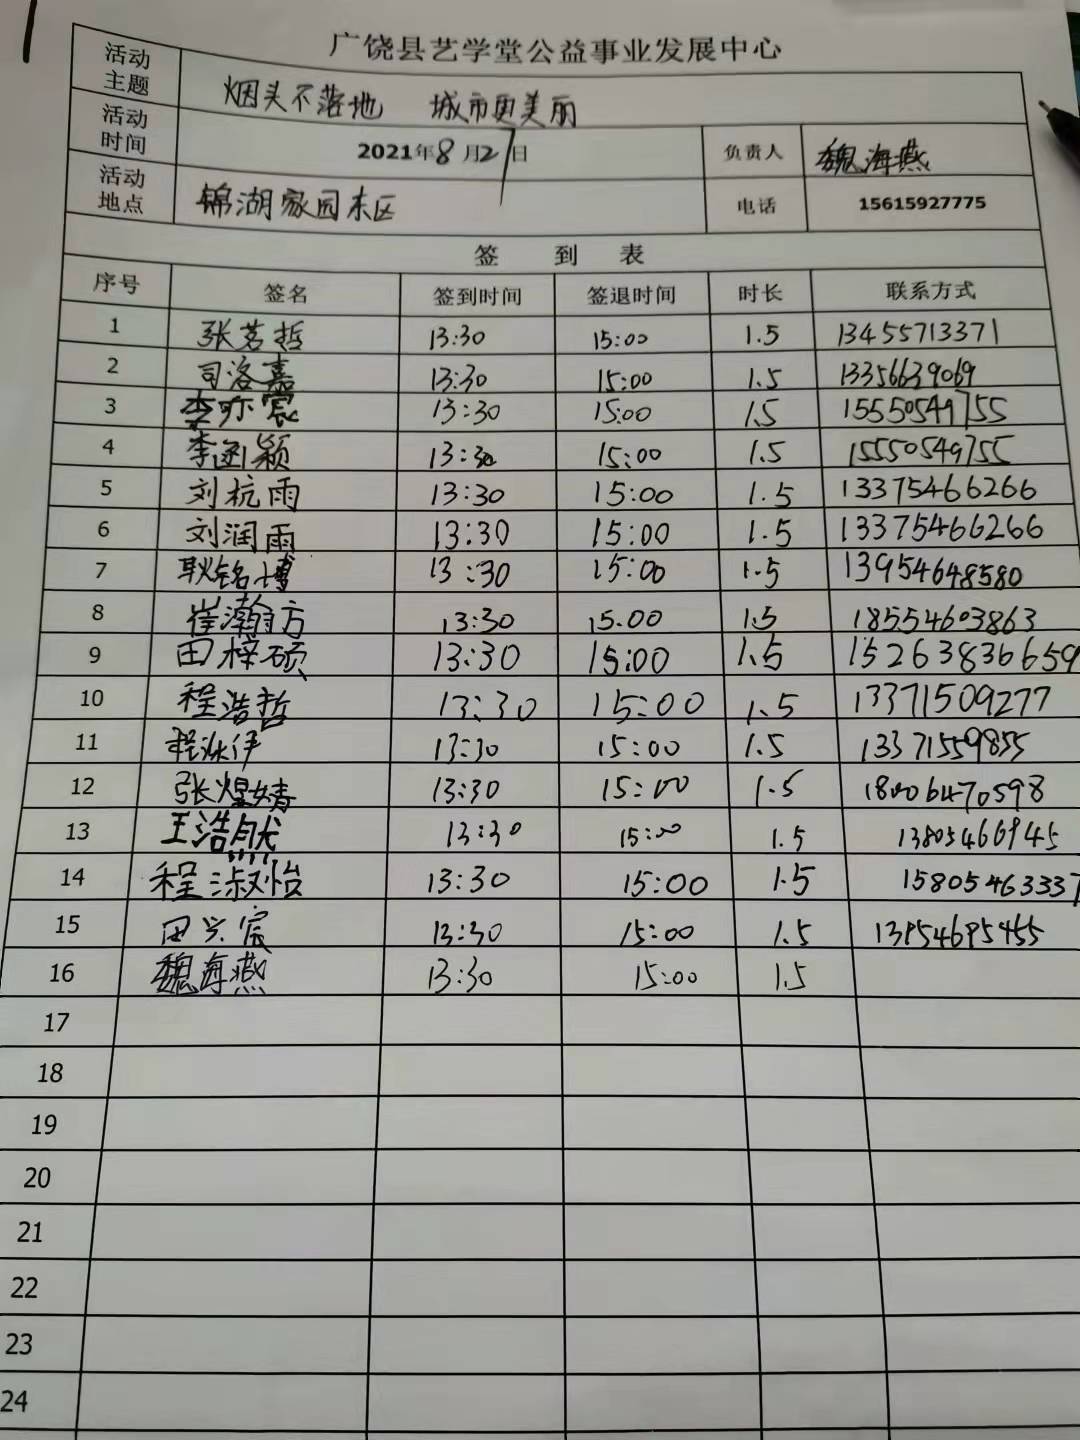 广饶县艺学堂公益事业发展中心
活动主题 烟头不落地 城市更美丽
活动时间 2021年8月27日 负责人 魏海燕
活动地点 锦湖家园东区 电话 15615927775
签 到 表
序号 签名 签到时间 签退时间 时长 联系方式
1 张茗哲 13:30 15:00 1.5 13455713371
2 司洛嘉 13:30 15:00 1.5 13356639069
3 李亦宸 13:30 15:00 1.5 15550549755
4 李函颖 13:30 15:00 1.5 15550549755
5 刘杭雨 13:30 15:00 1.5 13375466266
6 刘润雨 13:30 15:00 1.5 13375466266
7 耿铭博 13:30 15:00 1.5 13954648580
8 崔瀚方 13:30 15.00 1.5 18554603863
9 田梓硕 13:30 15:00 1.5 15263836659
10 程浩哲 13:30 15:00 1.5 13371509277
11 程泳伊 13:30 15:00 1.5 13371559855
12 张煜婧 13:30 15:00 1.5 18006470598
13 王浩然 13:30 15:00 1.5
14 程淑怡 13:30 15:00 1.5 15805463337
15 田兴宸 13:30 15:00 1.5
16 魏海燕 13:30 15:00 1.5
17
18
19
20
21
22
23
24